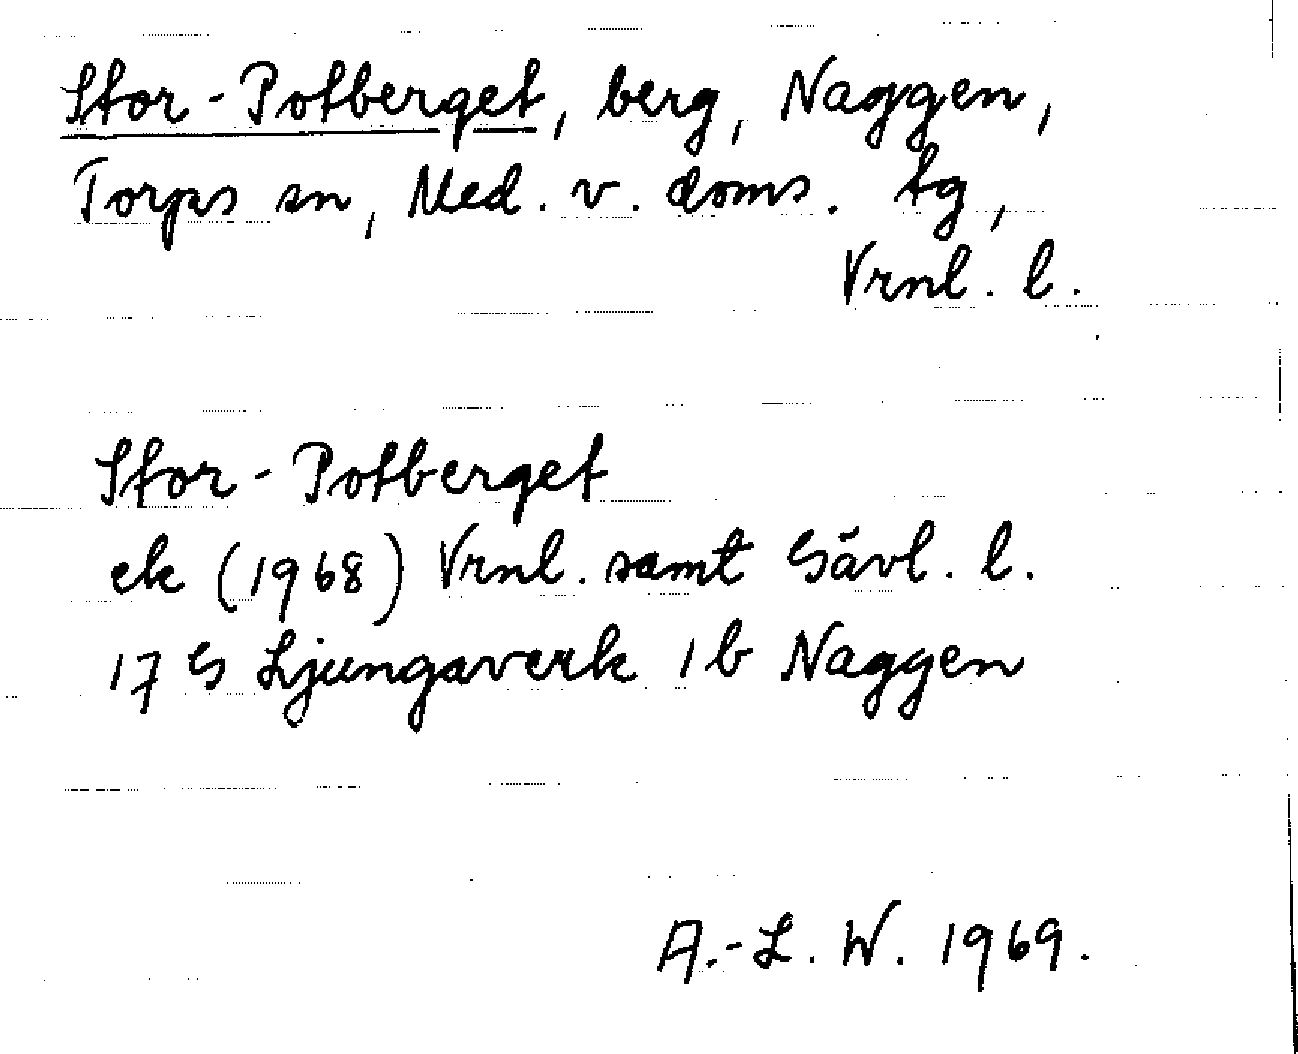 Stor-Potberget, berg, Naggen,
Torps sn, Med. v. doms. tg,
Vrnl. l.
Stor-Potberget
ek (1968) Vrnl. samt Gävl. l.
17 G Ljungaverk 1b Naggen
A.-L. W. 1969.